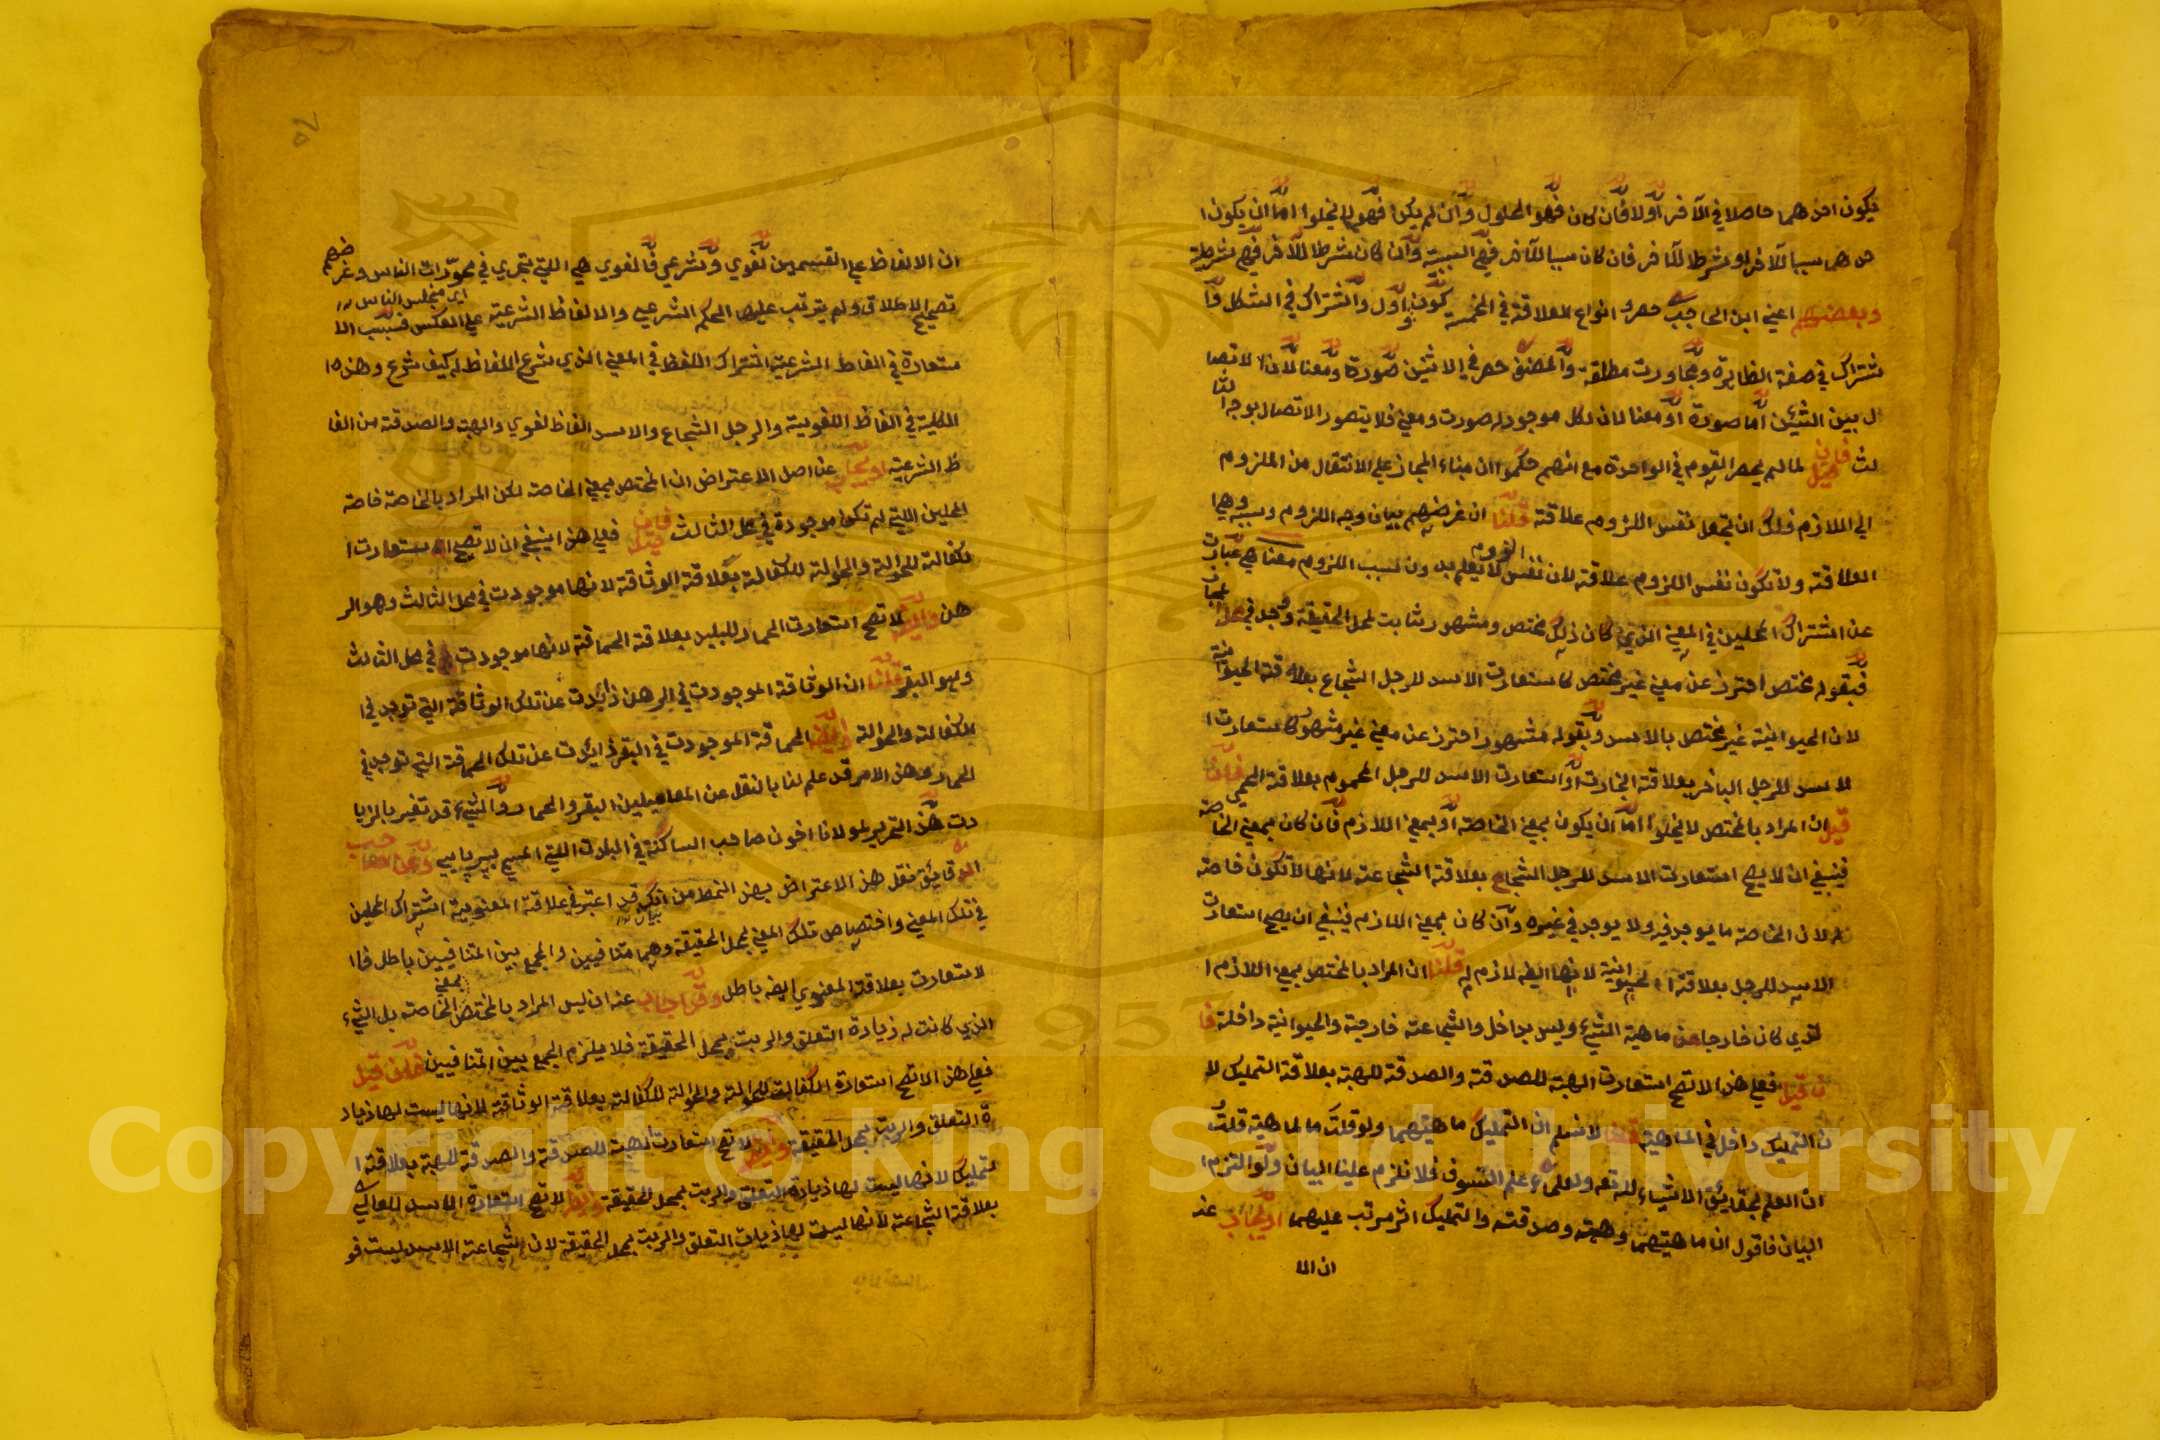 يكون احدهما حاصلا في الآخر اولا فان كان فهو الحلول وان لم يكن فهو لا يخلوا اما ان يكون ا
حدهما سببا للآخر او شرطا للآخر فان كان سببا للآخر فهي السببية وان كان شرطا للآخر فهي شرطية
وبعضهم اعني ابن الحاجب حصروا انواع العلاقة في الخمسة كون اول واشتراك في الشكل وا
شتراك في صفة الظاهرة ومجاورت مطلقة والمصنف حصر في الاثنين صورة ومعنا لان الاتصا
ل بين الشيئين اما صورة او معنا لان لكل موجود له صورت ومعني فلا يتصور الاتصال بوجه الثا
لث فان قيل لما لم يحصر القوم في الواحدة مع انهم حكموا ان مبناء المجاز علي الانتقال من الملزوم
الي اللازم فلك ان تجعل نفس اللزوم علاقة قلنا ان غرضهم بيان وجه اللزوم وسببه وهيا
العلاقة ولا تكون نفس اللزوم علاقة لان نفس اللزوم لا يعلم بدون سبب اللزوم معنا هي عبارت
عن اشتراك المحلين في المعني الذي كان ذلك مختص ومشهور ثابت لمحل الحقيقة وجد في محل المجاز
فبقوله مختص احترز عن معني غير مختص كاستعارت الاسد للرجل الشجاع بعلاقة الحيوانية
لان الحيوانية غير مختص بالاسد وبقوله مشهور احترز عن معني غير مشهور كاستعارت ا
لاسد للرجل الباخر بعلاقة البخارت او استعارت الاسد للرجل المحموم بعلاقة الحمي فان
قيل ان المراد بالمختص لا يخلوا اما ان يكون بمعني الخاصة او بمعني اللازم فان كان بمعني الخاصة
فينبغي ان لا يصح استعارت الاسد للرجل الشجاع بعلاقة الشجاعة لانها لا تكون خاصة
له لان الخاصة ما يوجد فيه ولا يوجد في غيره وان كان بمعني اللازم فينبغي ان يصح استعارت
الاسد للرجل بعلاقة الحيوانية لانها ايضا لازم له قلنا ان المراد بالمختص بمعني اللازم ا
لذي كان خارجا عن ماهية الشيء وليس بداخل والشجاعة خارجة والحيوانية داخلة فا
ن قيل فعلي هذا لا تصح استعارت الهبة للصدقة والصدقة للهبة بعلاقة التمليك لا
ن التمليك داخل في الماهية قلنا لا نسلم ان التمليك ماهيتهما ولو قلت ما لماهية قلت
ان العلم بحقايق الاشياء لله تعه ولعلماء علم التصوف فلا نلزم علينا البيان ولو التزم ا
لبيان فاقول ان ماهيتهما وهبة وصدقته والتمليك اثر مرتب عليهما او يجاب عنه
ان الا
ان الالفاظ علي القسمين لغوي وشرعي فاللغوي هي اللتي تجري في محورات الناس وغرضهم
اي مجلس الناس
تصحيح الاطلاق ولم يترتب عليها الحكم الشرعي والالفاظ الشرعية علي العكس فسبب الا
ستعارة في الفاظ الشرعية اشتراك اللفظ في المعني الذي شرع اللفاظ له كيف شرع وهذه ا
لكلية في الفاظ اللغوية والرجل الشجاع والاسد الفاظ لغوي والهبة والصدقة من الفا
ظ الشرعية او يجاب عن اصل الاعتراض ان المختص بمعني الخاصة لكن المراد بالخاصة خاصة
المحلين اللتي لم تكن موجودة في محل الثالث فان قيل فعلي هذا ينبغي ان لا تصح استعارت ا
لكفالة للحوالة والحوالة للكفالة بعلاقة الوثاقة لانها موجودت في محل الثالث وهو الر
هن وايضا لا تصح استعارت الحمار للبليد بعلاقة الحماقة لانها موجودت في محل الثالث
وهو البقر قلنا ان الوثاقة الموجودت في الرهن زايدت عن تلك الوثاقة التي توجد في ا
لكفالة والحوالة ايضا الحماقة الموجودت في البقر زايدت عن تلك الحماقة التي توجد في
الحمار وهذا الامر قد علم لنا بالنقل عن المعاملين البقر والحمار والشيء قد تغير بالزيا
دت هذا التحرير لمولانا اخون صاحب الساكنة في البلدت اللتي المسمي بيرپايي وعن صاحب
الدقايق نقل هذا الاعتراض بهذا النمط من انك قد اعتبر في علاقة المعنوية اشتراك المحلين
بيان
في تلك المعني واختصاص تلك المعني لمحل الحقيقة وهما متنافيين والجمع بين المتنافيين باطل فا ا
لاستعارت بعلاقة المعنوي ايضا باطل وقد اجاب عنه ان ليس المراد بالمختص بمعني الخاصة بل الشيء
الذي كانت له زيادة التعلق والربت بمحل الحقيقة فلا يلزم الجمع بين المتنافيين فان قيل
فعلي هذا لا تصح استعارة الكفالت للحوالة والحوالة للكفالة بعلاقة الوثاقة لانها ليست لها زياد
ة التعلق والربت بمحل الحقيقة وايضا لا تصح استعارت الهبة للصدقة والصدقة للهبة بعلاقة ا
لتمليك لانها ليست لها زيادة التعلق والربت بمحل الحقيقة وايضا لا تصح استعارة الاسد
بعلاقة الشجاعة لانها ليست لها زيادت التعلق والربت بمحل الحقيقة لان الشجاعة الاسد ليست فو
Copyright © King Saud University
1957